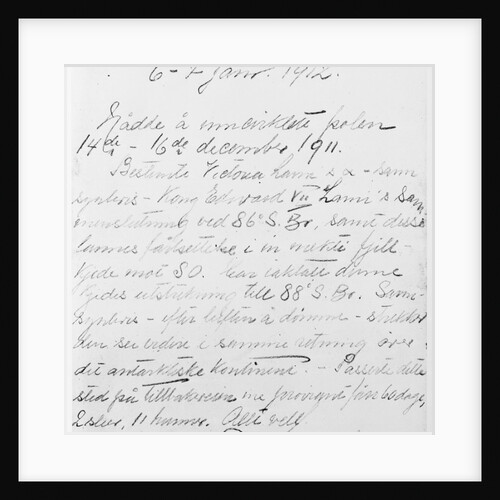 6-7 janr. 1912.
Nådde å inncirklete polen
14de - 16de december 1911.
Bestemte Victoria Land's - sann
synlens - Kong Edward VII Land's sam
menslutning ved 86° S. Br., samt disse
landes fortsettelse i en mektig fjell-
kjede mot SO. har iaktatt denne
kjedes utstrekning till 88° S. Br. Sann-
synlens - efter luften å dømme - strekker
den sei videre i samme retning over
det antarktiske kontinent. - Passerte dette
sted på tillbakeveien med proviant for 60 dage,
2 sleer, 11 hunner. Allt vell